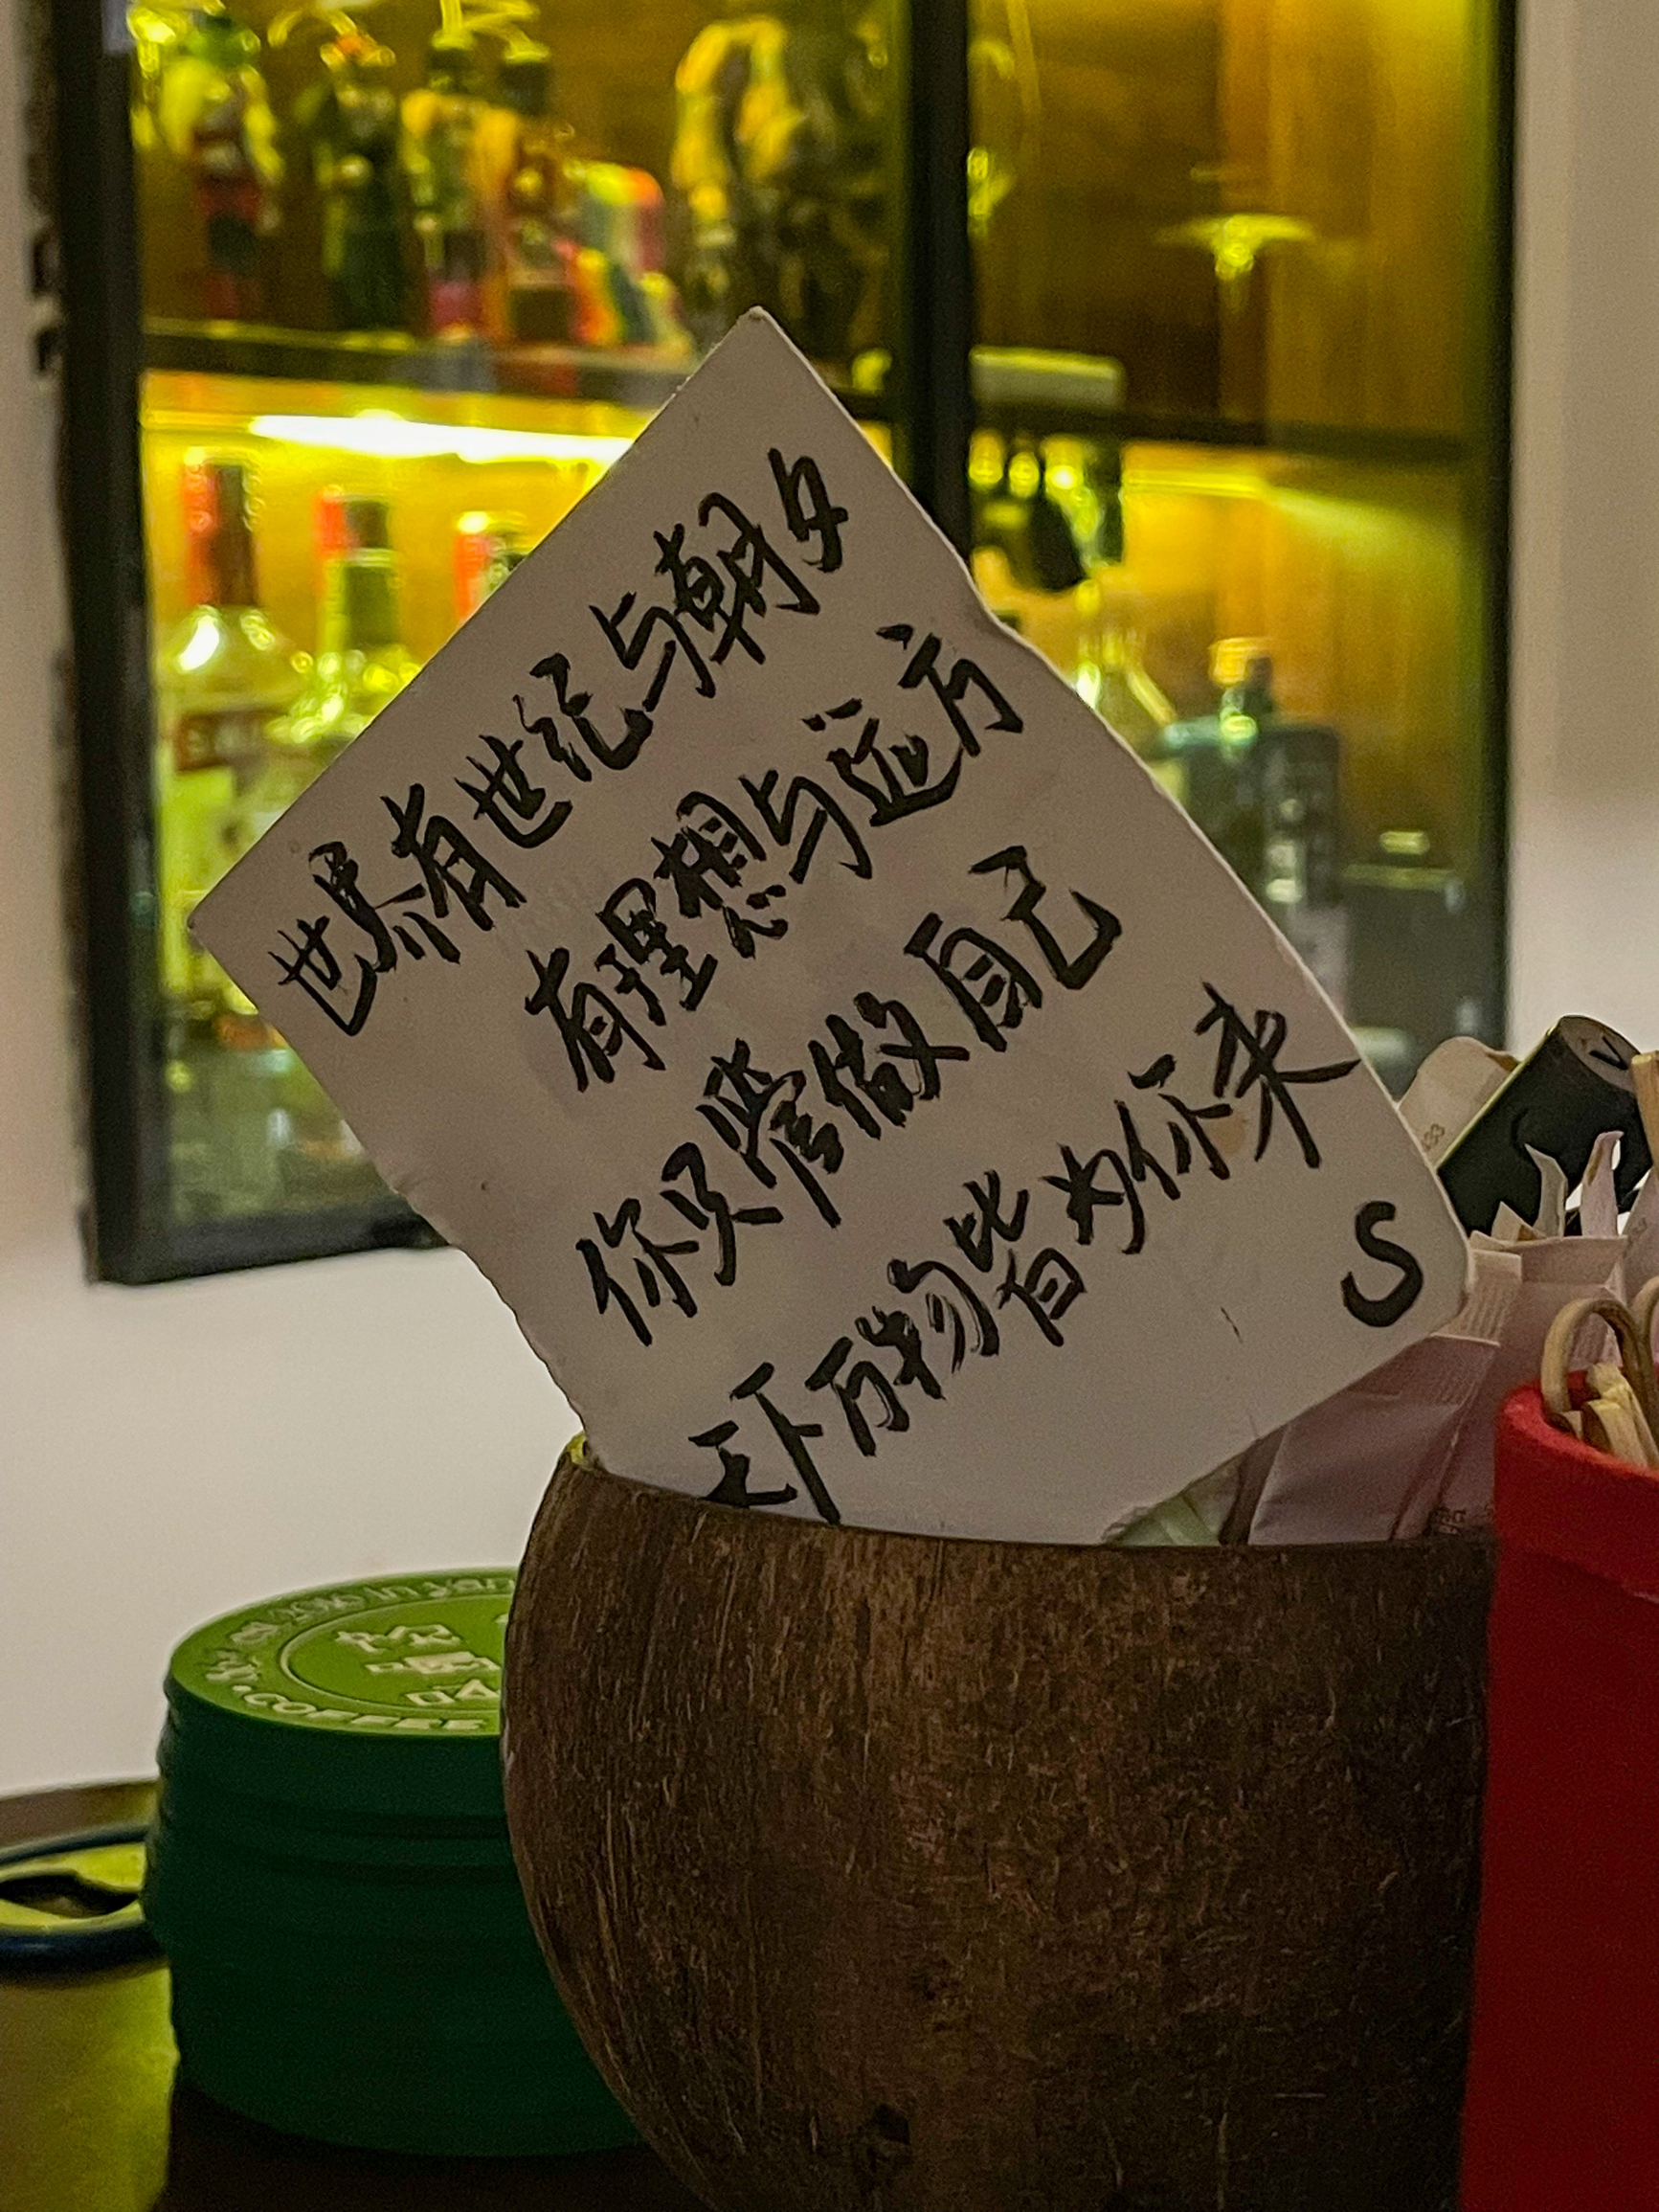 世界有世纪与朝夕
有理想与远方
你只管做自己
天下万物皆为你来
S
COFFEE